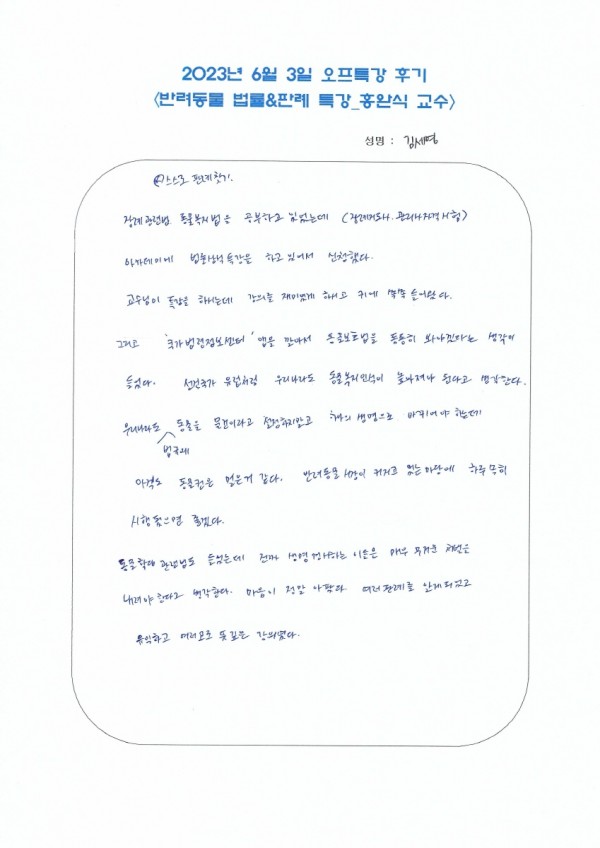 2023년 6월 3일 오프특강 후기
<반려동물 법률&판례 특강_홍완식 교수>
성명 : 김세명
스스로 판례찾기.
장례관련법 동물복지법은 공부하고 있었는데 (장례지도사. 관리사자격시험)
아카데미에 법률상식특강을 하고 있어서 신청했다.
교수님이 특강을 하시는데 강의를 재미있게 하시고 귀에 쏙쏙 들어왔다.
그리고 '국가법령정보센터' 앱을 깔아서 동물보호법을 틈틈히 봐야겠다는 생각이
들었다. 선진국가 유럽처럼 우리나라도 동물복지인식이 높아져야 된다고 생각한다.
우리나라도 동물을 물건이라고 절정하지않고 하나의 생명으로 바뀌어야 하는데
법규제
아직도 동물권은 멀은거 같다. 반려동물 시장이 커지고 있는 마당에 하루 속히
시행됬으면 좋겠다.
동물학대 관련법도 들었는데 진짜 생명경시하는 이들은 매우 무거운 처벌은
내려야 한다고 생각한다. 마음이 정말 아팠다 여러판례를 알게되었고
유익하고 여러모로 뜻깊은 강의였다.